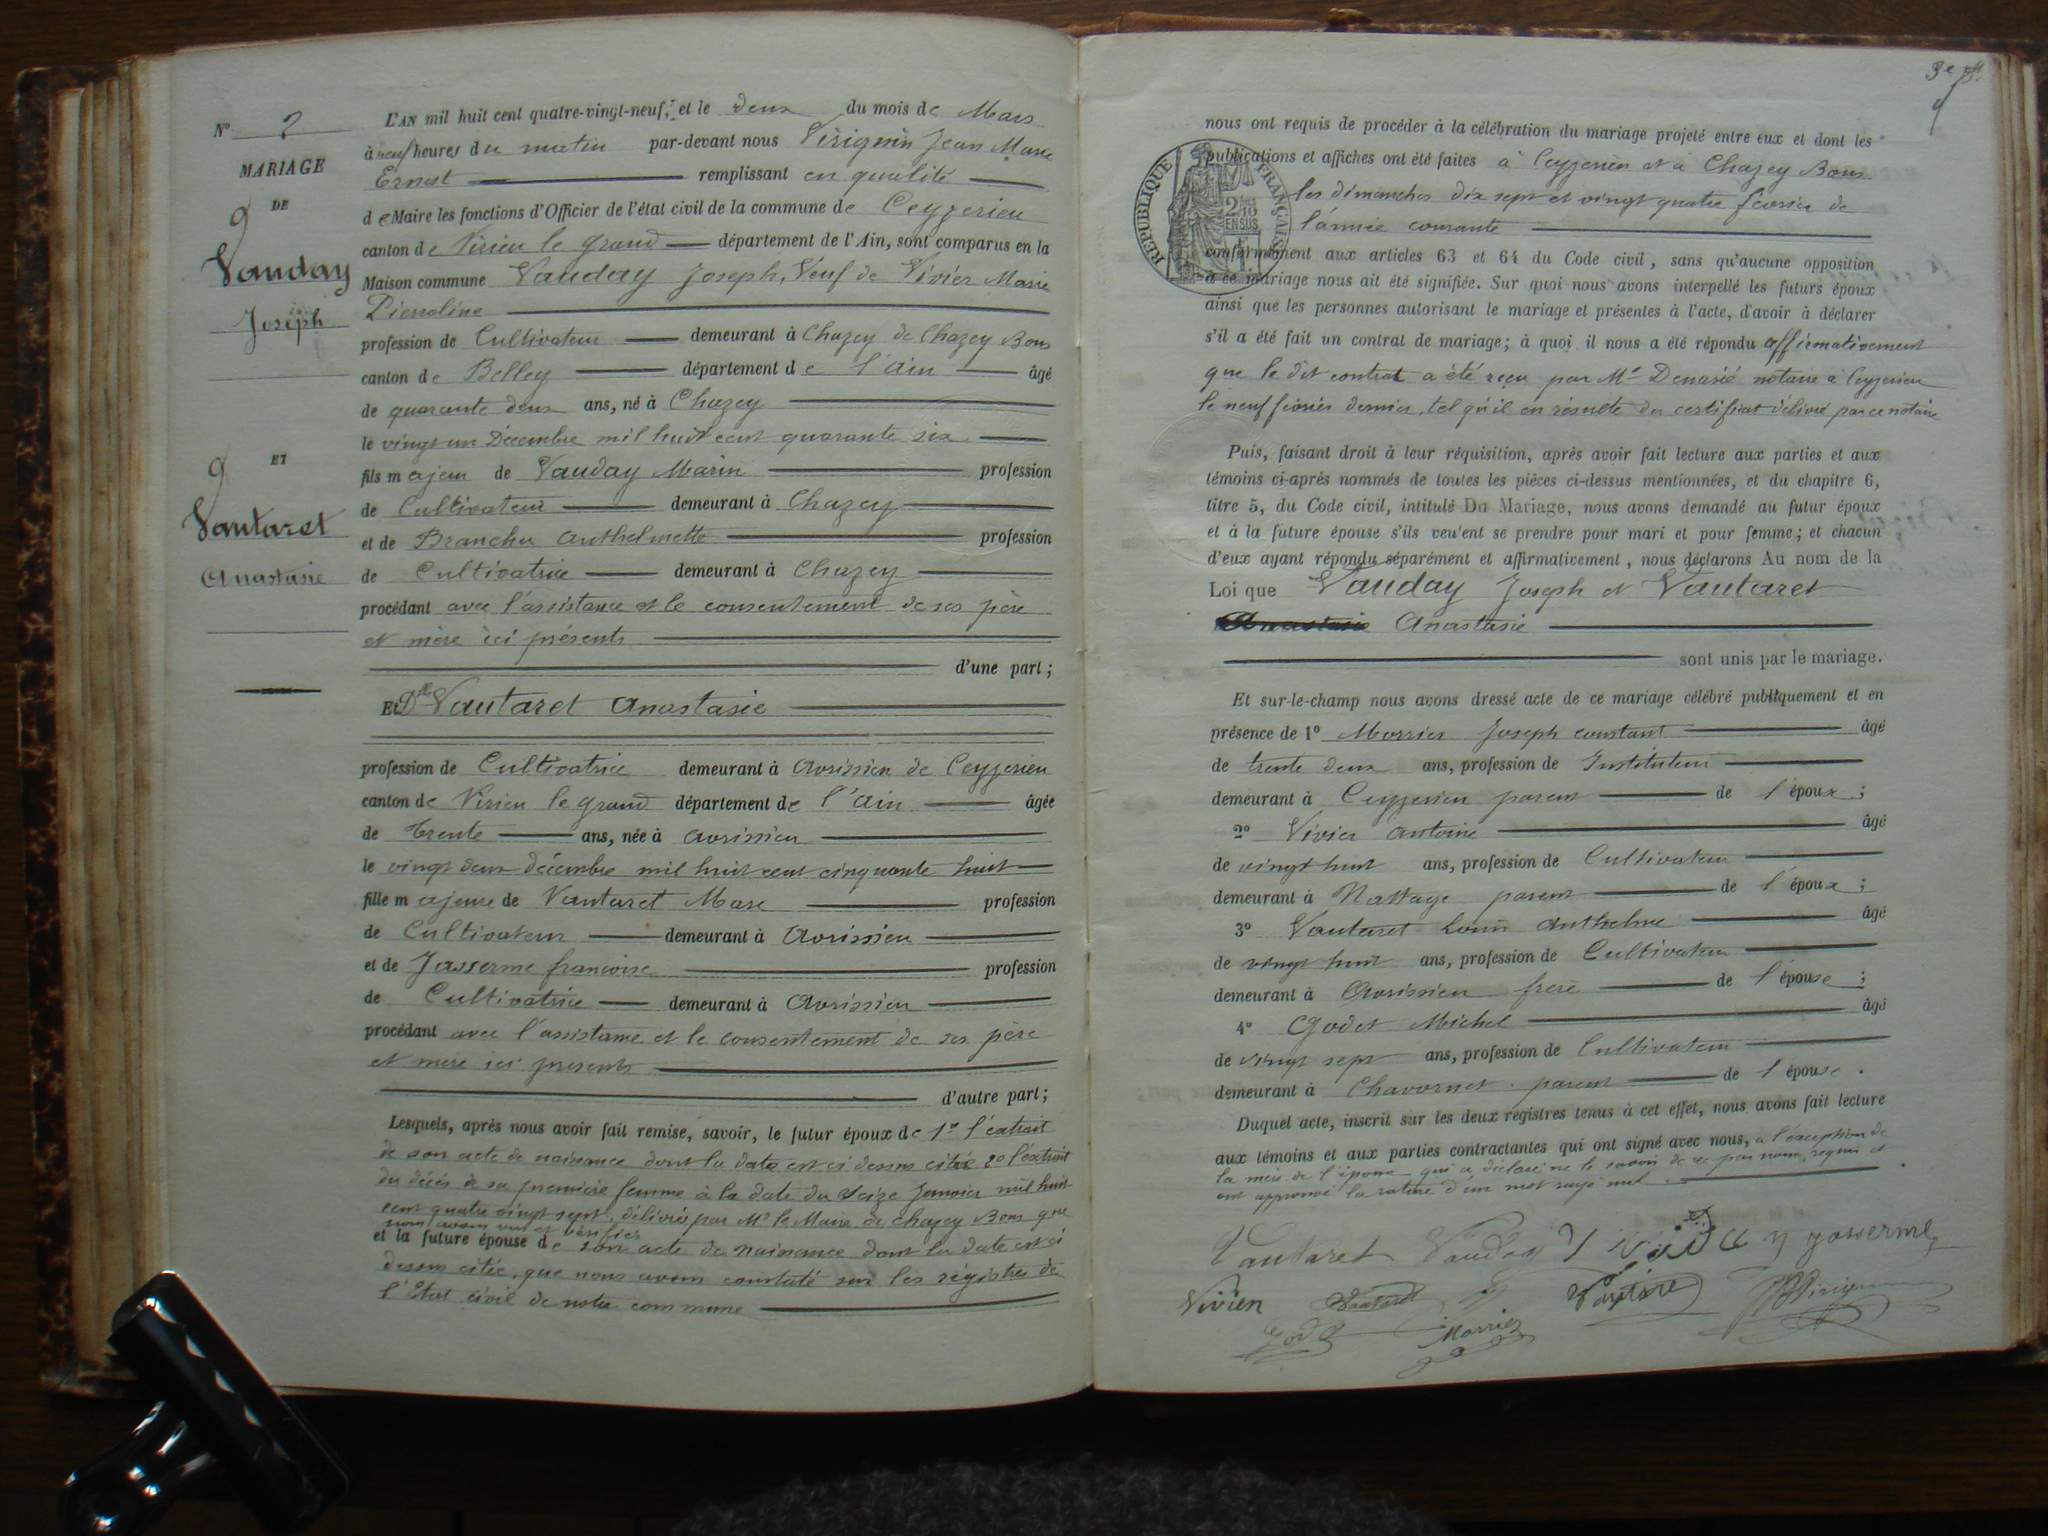 N° 2
MARIAGE
DE
Vauday
Joseph
ET
Vautaret
Anastasie
L'AN mil huit cent quatre-vingt-neuf, et le deux du mois de Mars
à neuf heures du matin par-devant nous Virignin Jean Marie
Ernest remplissant en qualité
de Maire les fonctions d'Officier de l'état civil de la commune de Ceyzerieu
canton de Virieu le grand département de l'Ain, sont comparus en la
Maison commune Vauday Joseph, Veuf de Vivier Marie
Pierroline
profession de Cultivateur demeurant à Chazey de Chazey Bons
canton de Belley département de l'Ain âgé
de quarante deux ans, né à Chazey
le vingt un Décembre mil huit cent quarante six
fils majeur de Vauday Marin profession
de Cultivateur demeurant à Chazey
et de Branchu Anthelmette profession
de Cultivatrice demeurant à Chazey
procédant avec l'assistance et le consentement de ses père
et mère ici présents
d'une part ;
Et Dlle Vautaret Anastasie
profession de Cultivatrice demeurant à Avrissieu de Ceyzerieu
canton de Virieu le grand département de l'Ain âgée
de trente ans, née à Avrissieu
le vingt deux décembre mil huit cent cinquante huit
fille majeure de Vautaret Marc profession
de Cultivateur demeurant à Avrissieu
et de Jasserme francoise profession
de Cultivatrice demeurant à Avrissieu
procédant avec l'assistance et le consentement de ses père
et mère ici présents
d'autre part ;
Lesquels, après nous avoir fait remise, savoir, le futur époux de 1° l'extrait
de son acte de naissance dont la date est ci dessus citée 2° l'extrait
du décès de sa première femme à la date du Seize Janvier mil huit
cent quatre vingt sept, délivrés par Mr le Maire de Chazey Bons que
nous avons vus et vérifiés
et la future épouse de son acte de naissance dont la date est ci
dessus citée, que nous avons constaté sur les régistres de
l'Etat civil de notre commune
3e
nous ont requis de procéder à la célébration du mariage projeté entre eux et dont les
publications et affiches ont été faites à Ceyzerieu et à Chazey Bons
les dimanches dix sept et vingt quatre février de
l'année courante
RÉPUBLIQUE FRANÇAISE
2/10 EN SUS
conformément aux articles 63 et 64 du Code civil, sans qu'aucune opposition
à ce mariage nous ait été signifiée. Sur quoi nous avons interpellé les futurs époux
ainsi que les personnes autorisant le mariage et présentes à l'acte, d'avoir à déclarer
s'il a été fait un contrat de mariage ; à quoi il nous a été répondu affirmativement
que le dit contrat a été reçu par Me Denasié notaire à Ceyzerieu
le neuf février dernier, tel qu'il en résulte du certificat délivré par ce notaire
Puis, faisant droit à leur réquisition, après avoir fait lecture aux parties et aux
témoins ci-après nommés de toutes les pièces ci-dessus mentionnées, et du chapitre 6,
titre 5, du Code civil, intitulé Du Mariage, nous avons demandé au futur époux
et à la future épouse s'ils veulent se prendre pour mari et pour femme ; et chacun
d'eux ayant répondu séparément et affirmativement, nous déclarons Au nom de la
Loi que Vauday Joseph et Vautaret
Anastasie Anastasie
sont unis par le mariage.
Et sur-le-champ nous avons dressé acte de ce mariage célébré publiquement et en
présence de 1° Morrier Joseph constant âgé
de trente deux ans, profession de Instituteur
demeurant à Ceyzerieu parent de l'époux ;
2° Vivier Antoine âgé
de vingt huit ans, profession de Cultivateur
demeurant à Nattage parent de l'époux ;
3° Vautaret Louis Anthelme âgé
de vingt huit ans, profession de Cultivateur
demeurant à Avrissieu frère de l'épouse ;
4° Godet Michel âgé
de vingt sept ans, profession de Cultivateur
demeurant à Chavornet parent de l'épouse.
Duquel acte, inscrit sur les deux registres tenus à cet effet, nous avons fait lecture
aux témoins et aux parties contractantes qui ont signé avec nous, à l'exception de
la mère de l'époux qui a déclaré ne le savoir de ce par nous requis et
ont approuvé la rature d'un mot rayé nul.
Vautaret Vauday J
Jasserme
Vivien Vautaret
Virignin
Godet Morrier